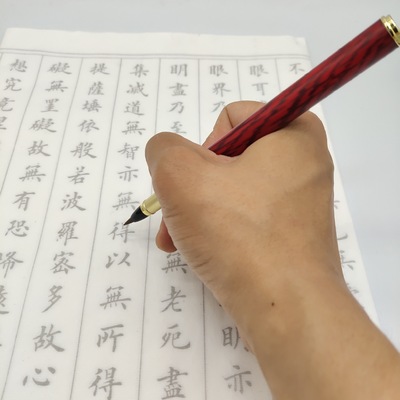 不
眼耳
眼界乃明亦
明盡乃至無老死盡
集滅道無智亦無得以無所得
提薩埵依般若波羅蜜多故心
礙無罣礙故無有恐怖
想究竟